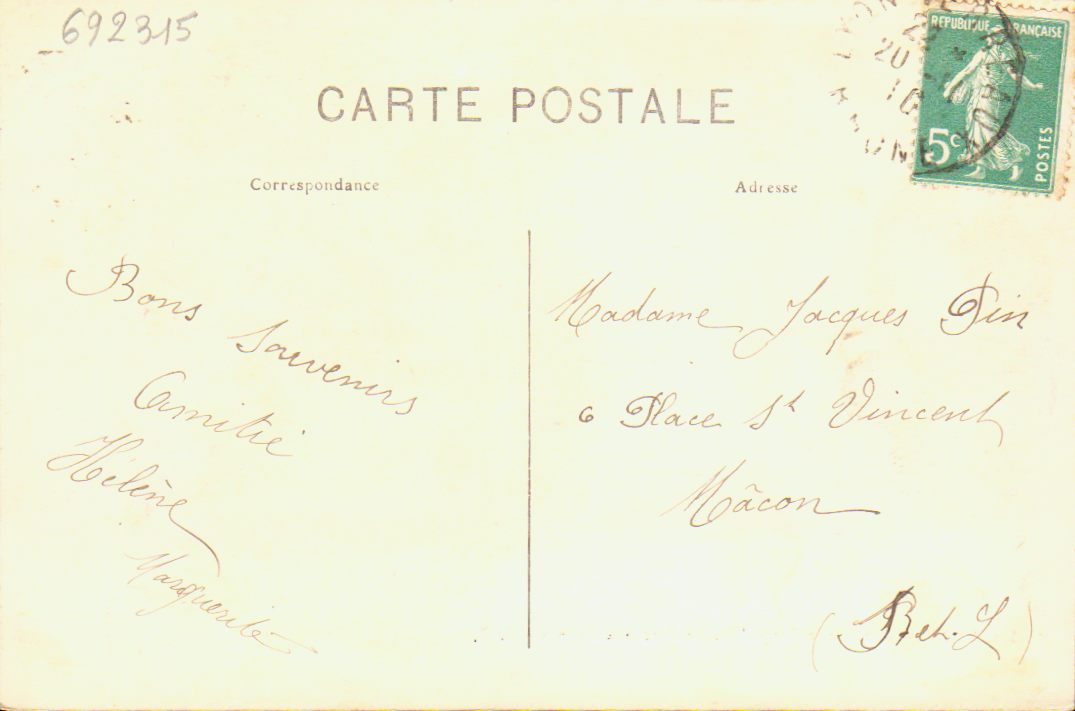 692315
CARTE POSTALE
REPUBLIQUE FRANÇAISE
5c
POSTES
RHONE
Correspondance
Adresse
Bons
Souvenirs
Amitié
Hélène
Marguerite
Madame Jacques Pin
6 Place St Vincent
Mâcon